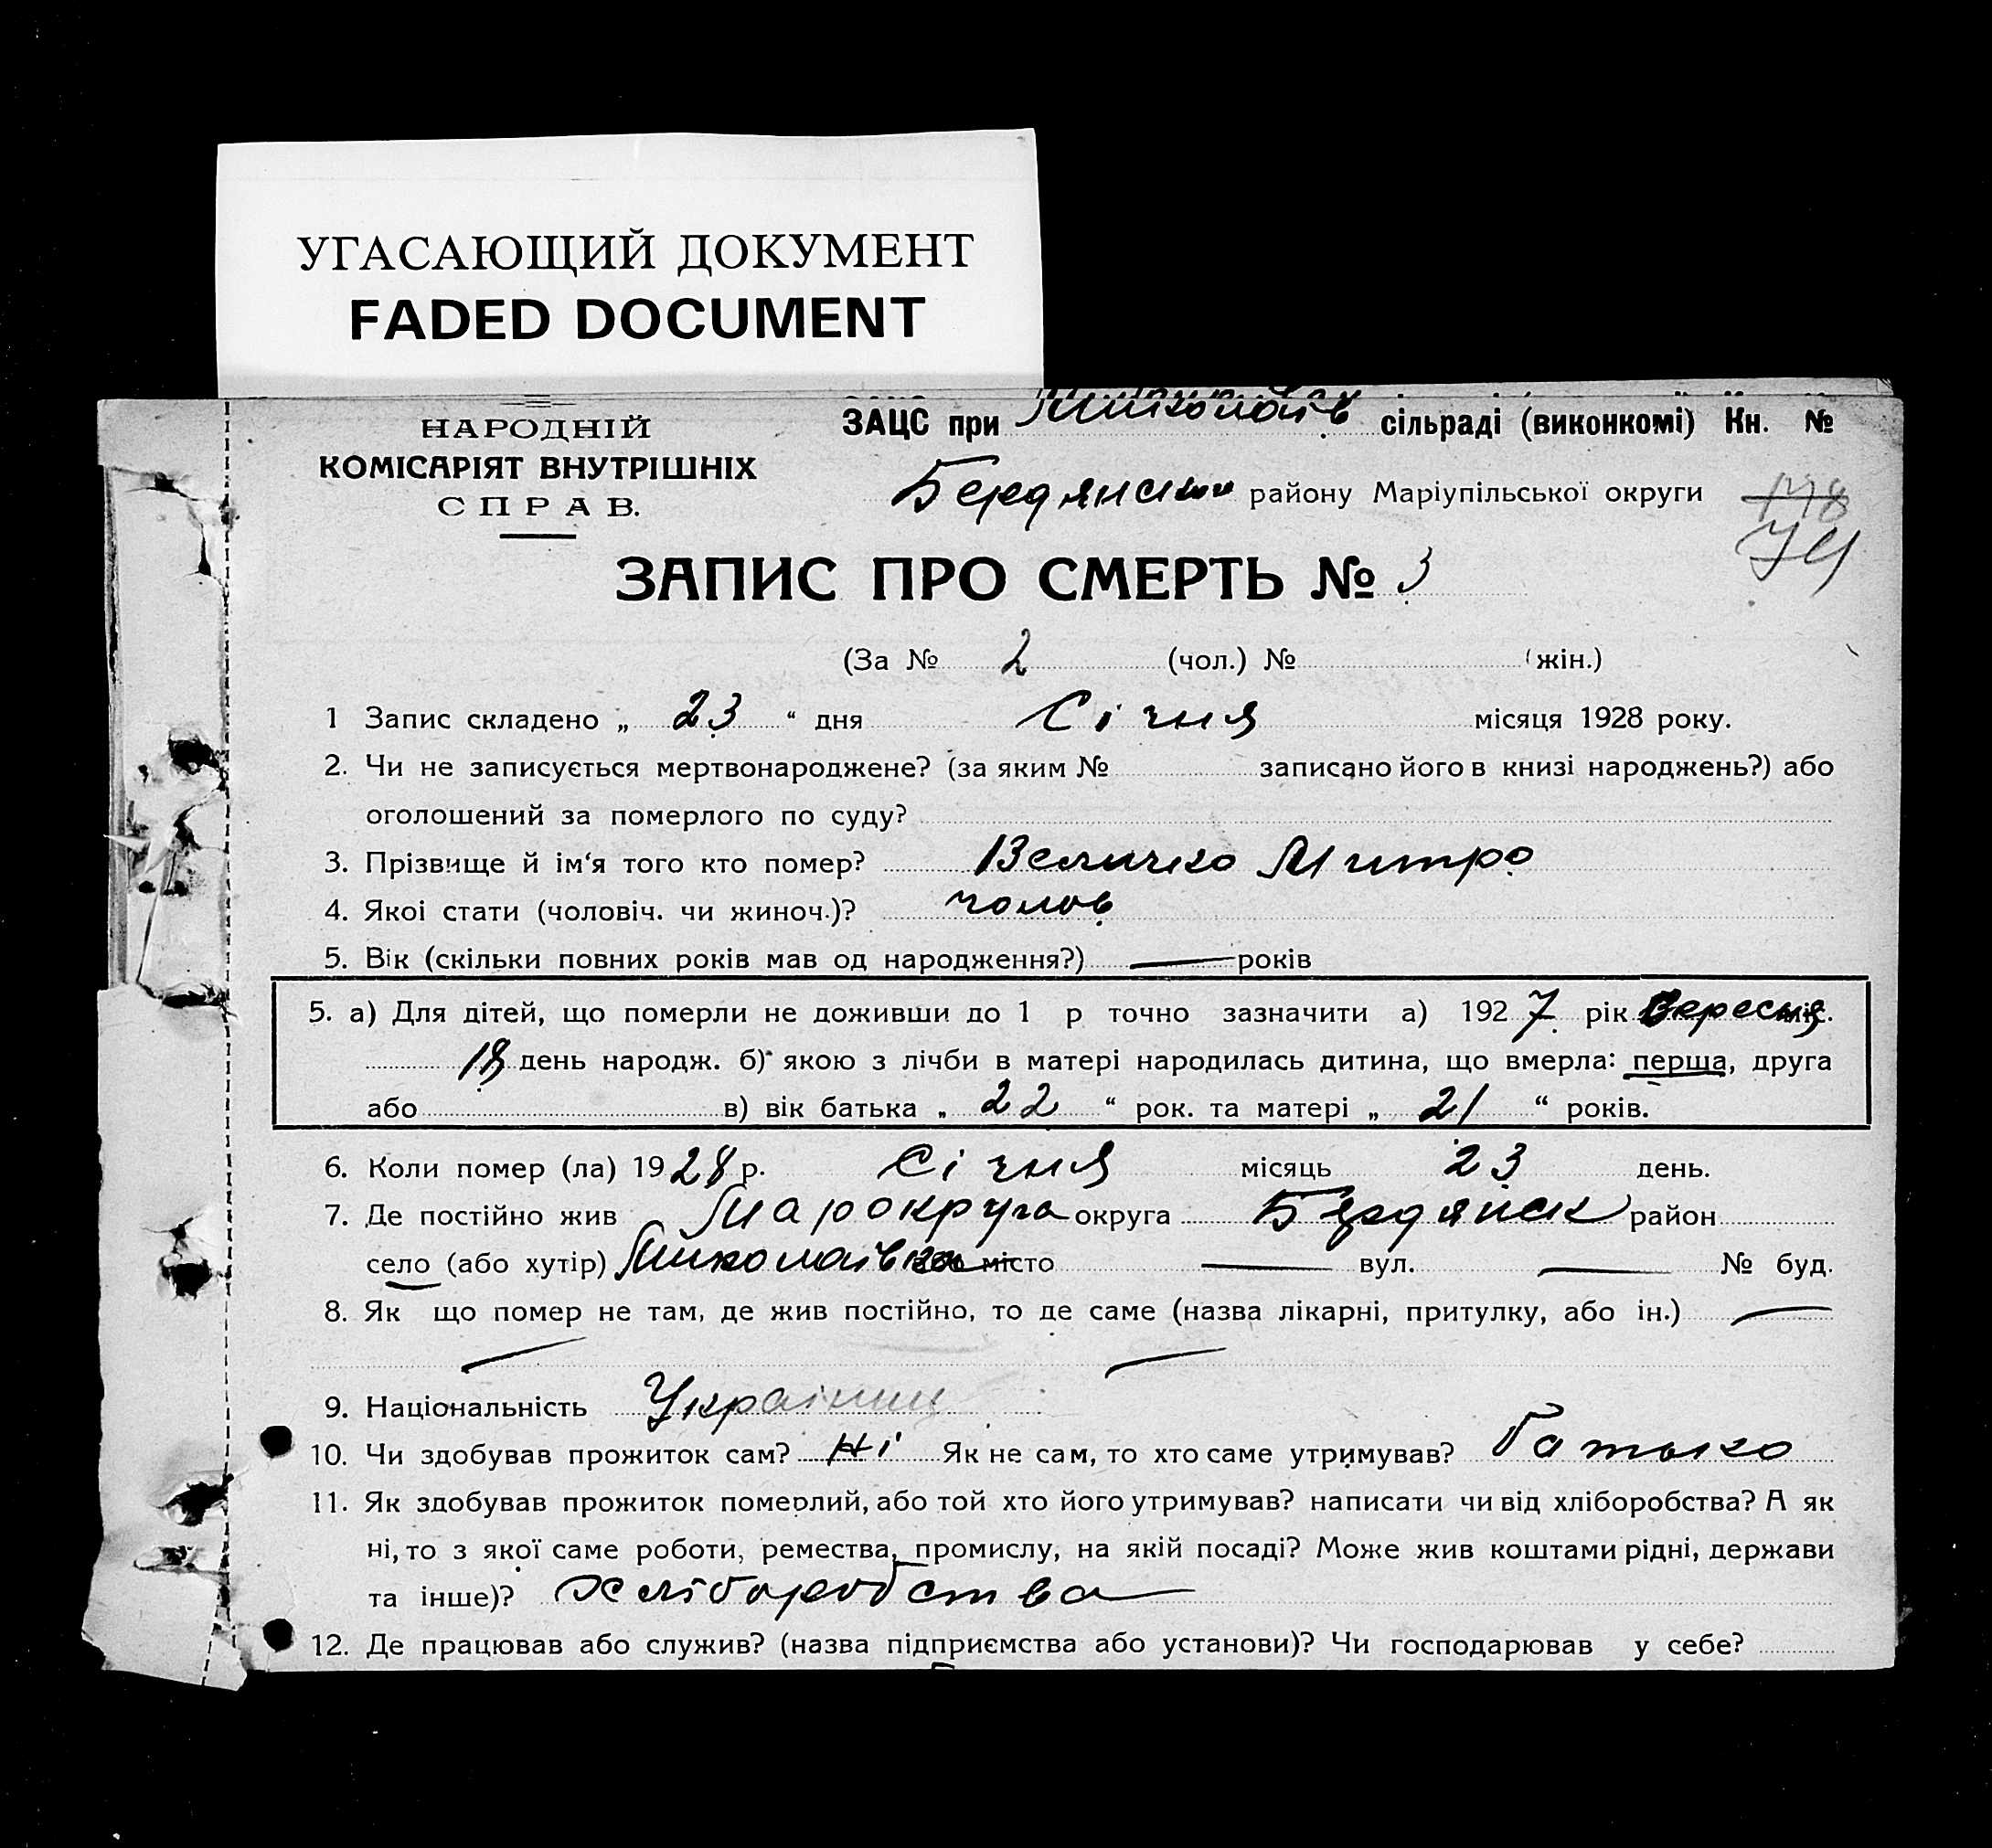 УГАСАЮЩИЙ ДОКУМЕНТ
FADED DOCUMENT
НАРОДНІЙ
КОМІСАРІЯТ ВНУТРІШНІХ
СПРАВ.
ЗАЦС при Миколаїв сільраді (виконкомі) Кн. №
Бердянськ району Маріупільської округи 178
74
ЗАПИС ПРО СМЕРТЬ № 3
(За № 2 (чол.) № (жін.)
1 Запис складено „ 23 “ дня Січня місяця 1928 року.
2. Чи не записується мертвонароджене? (за яким № записано його в книзі народжень?) або
оголошений за померлого по суду?
3. Прізвище й ім‘я того кто помер? Величко Митро
4. Якоі стати (чоловіч. чи жиноч.)? чолов
5. Вік (скільки повних років мав од народження?) — років
5. а) Для дітей, що померли не доживши до 1 р точно зазначити а) 1927 рік Вересня міс.
18 день народж. б) якою з лічби в матері народилась дитина, що вмерла: перша, друга
або в) вік батька „ 22 “ рок. та матері „ 21 “ років.
6. Коли помер (ла) 1928 р. Січня місяць 23 день.
7. Де постійно жив Марокруга округа Бердянськ район
село (або хутір) Миколаївка місто — вул. — № буд.
8. Як що помер не там, де жив постійно, то де саме (назва лікарні, притулку, або ін.) —
— —
9. Національність Українец
10. Чи здобував прожиток сам? Ні Як не сам, то хто саме утримував? Батько
11. Як здобував прожиток померлий, або той хто його утримував? написати чи від хліборобства? А як
ні, то з якої саме роботи, ремества, промислу, на якій посаді? Може жив коштами рідні, держави
та інше)? Хліборобства
12. Де працював або служив? (назва підприємства або установи)? Чи господарював у себе?